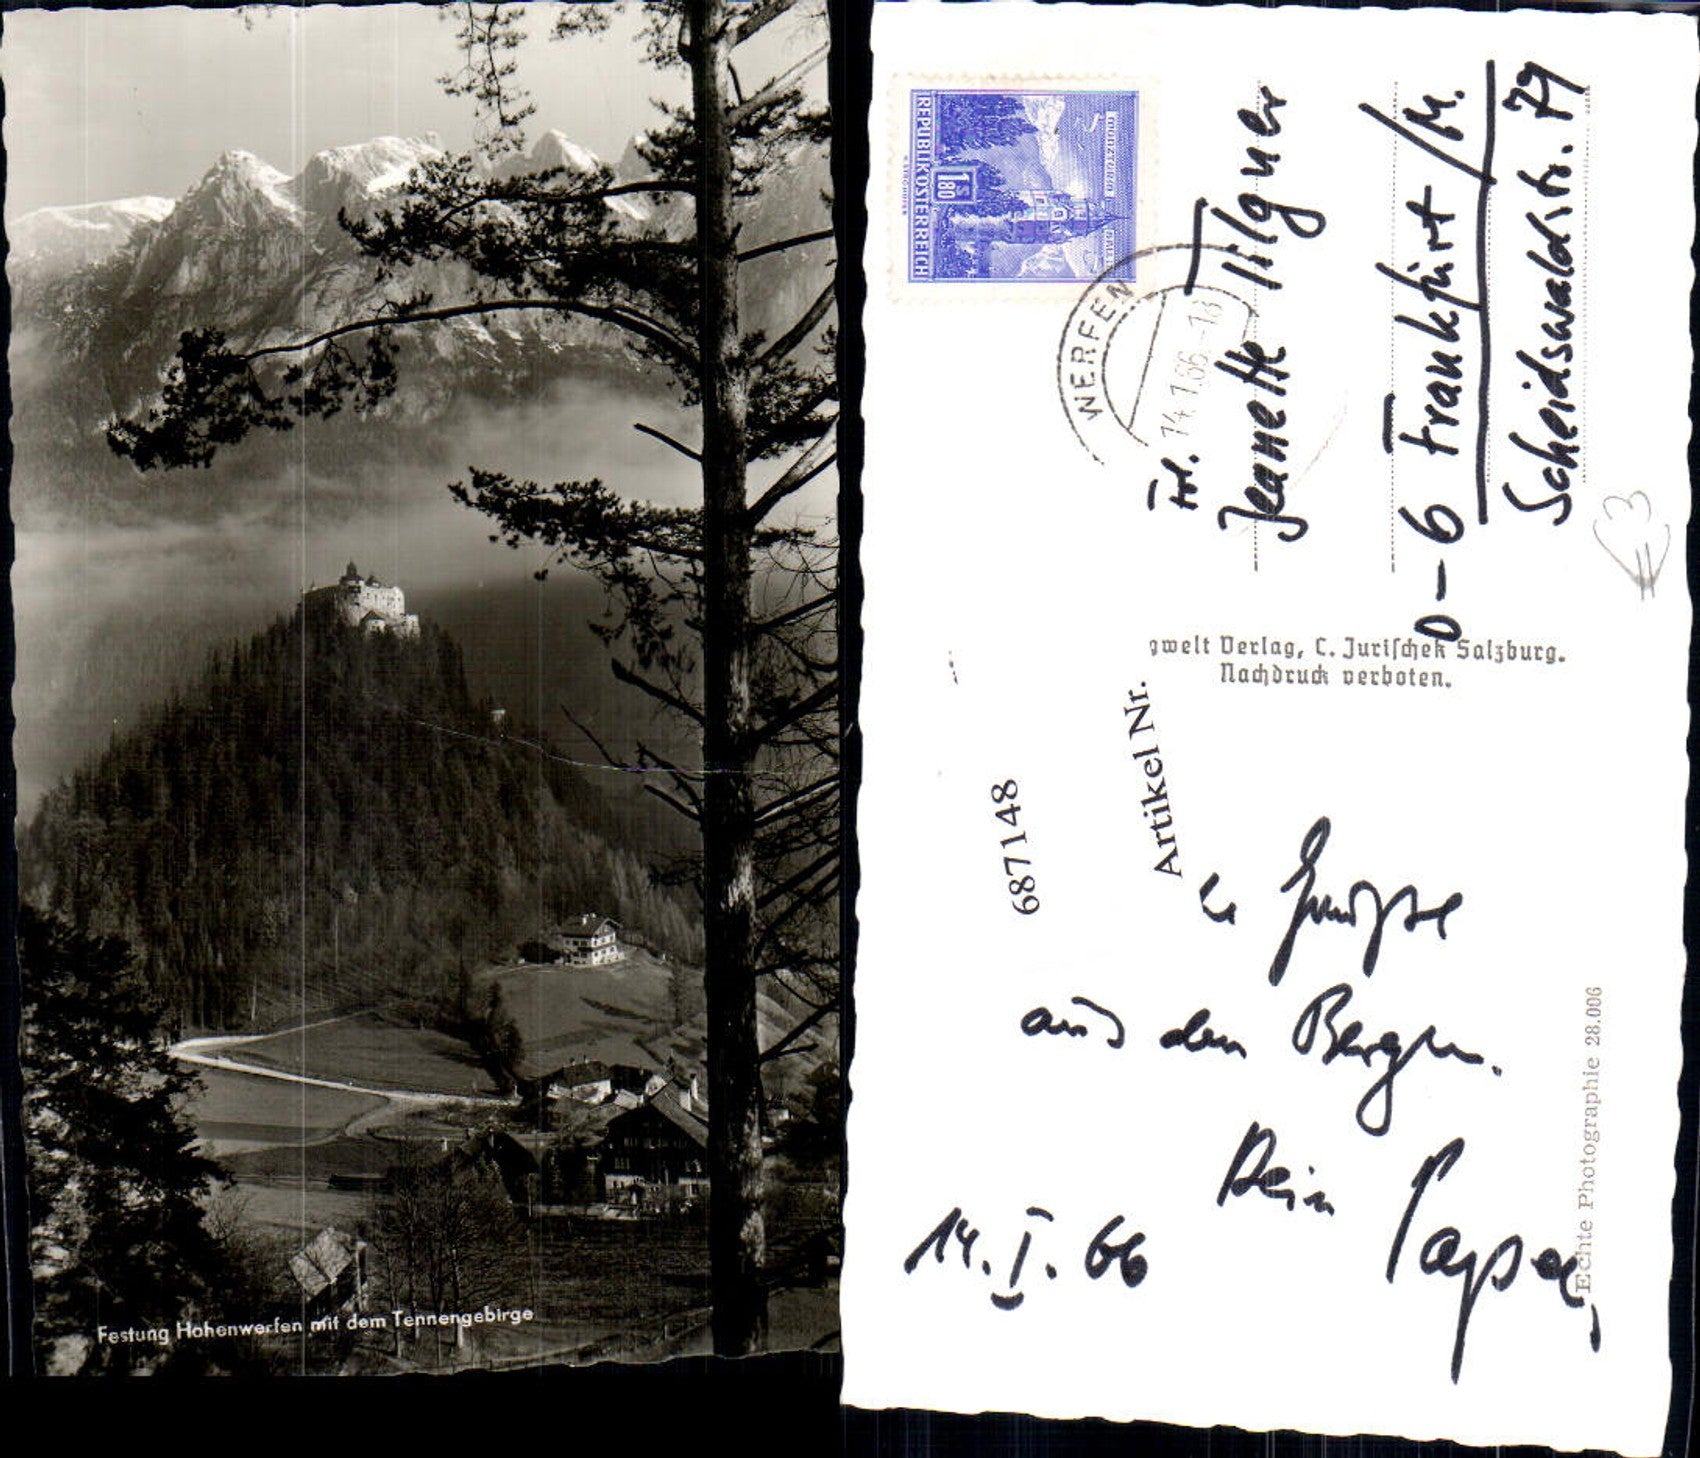 Festung Hohenwerfen mit dem Tennengebirge
REPUBLIK ÖSTERREICH
1.80
WERFEN
14.1.66.-18
Frl.
Jeanette Tilgner
D-6 Frankfurt/M.
Scheidswaldstr. 79
gwelt Verlag, C. Jurischek Salzburg.
Nachdruck verboten.
Artikel Nr.
687148
aus den Bergen.
Dein
14. I. 66
Echte Photographie 28.006